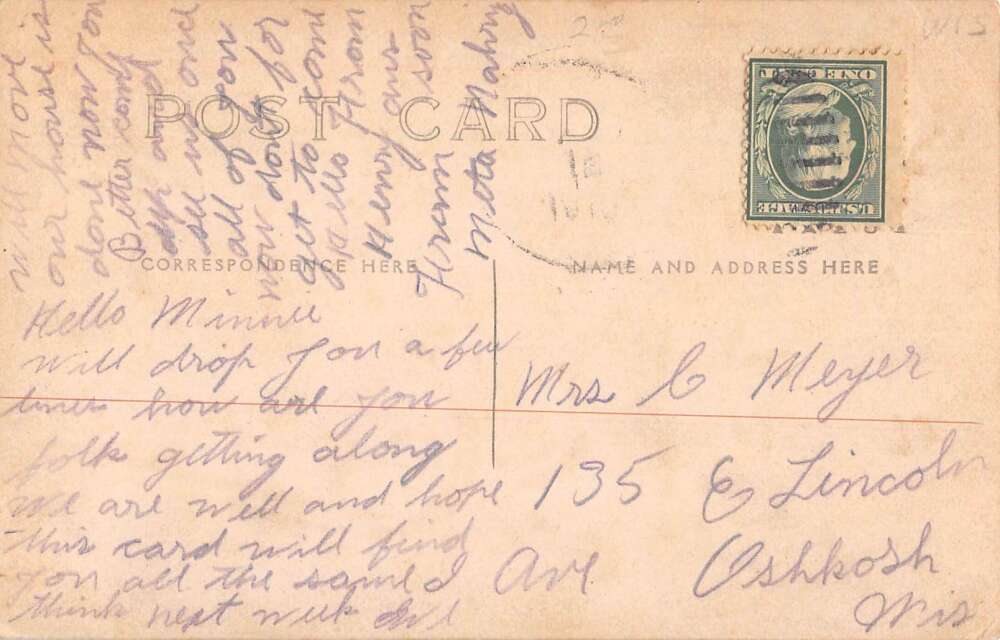 2nd
WIS
POST CARD
ONE CENT
U.S. POSTAGE
18
1910
CORRESPONDENCE HERE
NAME AND ADDRESS HERE
Hello Minnie
will drop you a few
lines how are you
folk getting along
We are well and hope
this card will find
you all the same I
think next week we
will move
our house is
done now you
Better come
up and
see us once
all of you
now dont for
get to come
Hello from
Henry ans
Hiram soon
Meta
Mrs C Meyer
135 E Lincoln
Ave Oshkosh
Wis